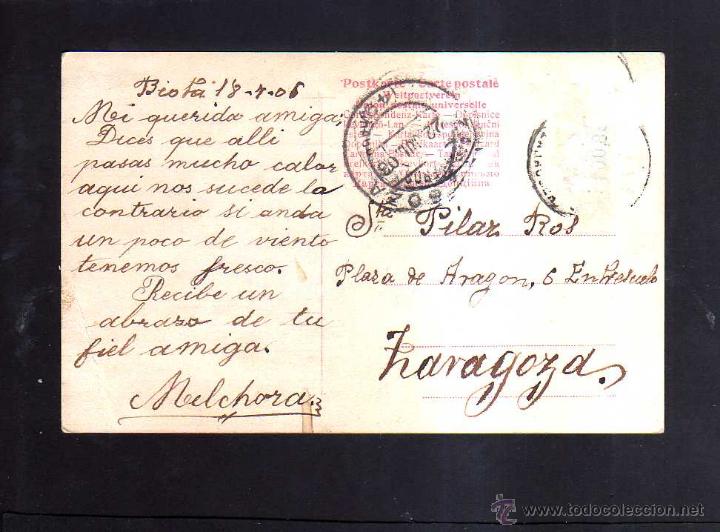 Biota 18-7-06
Mi querida amiga
Dices que alli
pasas mucho calor
aqui nos sucede lo
contrario si anda
un poco de viento
tenemos fresco.
Recibe un
abrazo de tu
fiel amiga.
Melchora
Postkarte - Carte postale
Weltpostverein
universelle
Sta Pilar Ros
Plaza de Aragon, 6 Entresuelo
Zaragoza.
© www.todocoleccion.net